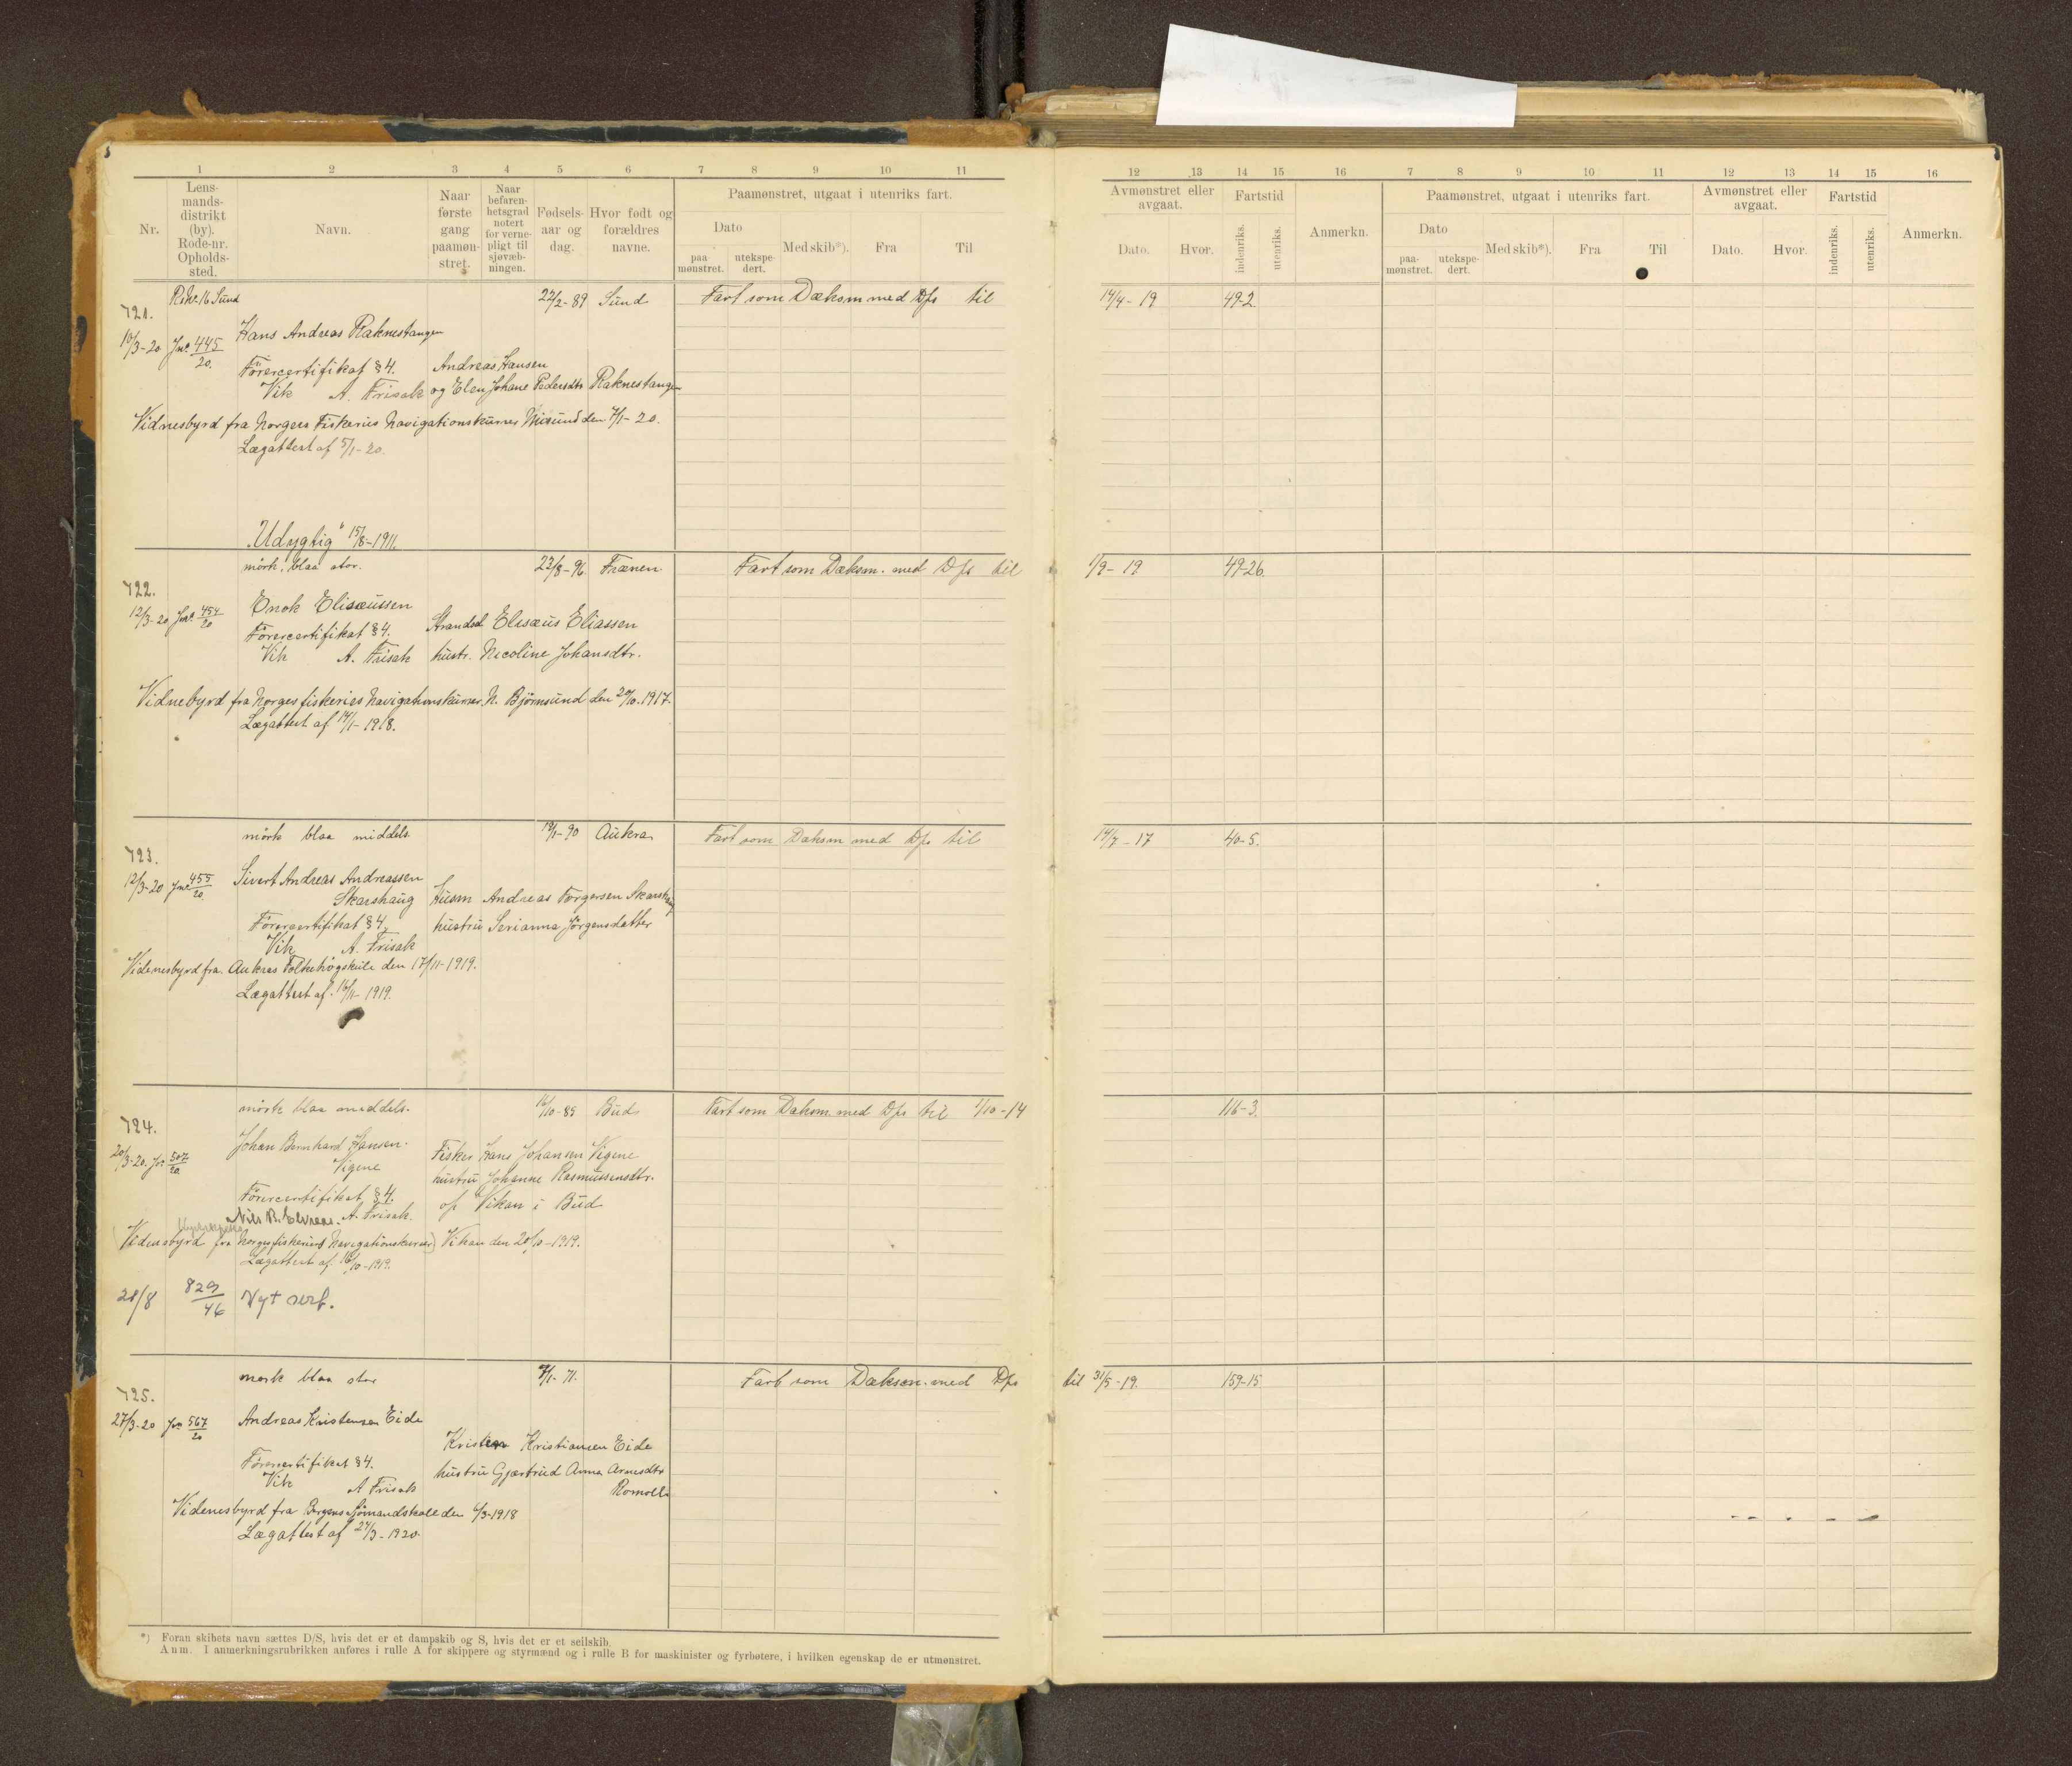 1 2 3 4 5 6 7 8 9 10 11
Nr.
Lens-
mands-
distrikt
(by).
Rode-nr.
Opholds-
sted.
Navn.
Naar
første
gang
paamøn-
stret.
Naar
befaren-
hetsgrad
notert
for verne-
pligt til
sjøvæb-
ningen.
Fødsels-
aar og
dag.
Hvor født og
forældres
navne.
Paamønstret, utgaat i utenriks fart.
Dato
paa-
mønstret.
utekspe-
dert.
Med skib*).
Fra
Til
12 13 14 15 16 7 8 9 10 11 12 13 14 15 16
Avmønstret eller
avgaat.
Dato.
Hvor.
Fartstid
indenriks.
utenriks.
Anmerkn.
Paamønstret, utgaat i utenriks fart.
Dato
paa-
mønstret.
utekspe-
dert.
Med skib*).
Fra
Til
Avmønstret eller
avgaat.
Dato.
Hvor.
Fartstid
indenriks.
utenriks.
Anmerkn.
16 Sund 22/2-89 Sund Fart som Dæksm med Dfs til 14/4-19 49-2.
721.
16/3-20 Jnr. 445/20. Hans Andreas Raknestangen
Förercertifikat §4. Andreas Hansen
Vik A. Frisak og Elen Johane Pedersdtr Raknestangen
Vidnesbyrd fra Norges Fiskeries Navigationskurses Misund den 7/1-20.
Lægattest af 5/1-20.
"Udygtig" 15/8-1911.
mörk. blaa stor. 22/8-96 Frænen. Fart som Dæksm. med Dfs til 1/9-19 49-26.
722.
12/3-20 Jnr. 454/20 Enok Elisæussen
Förercertifikat §4. Strandsd Elisæus Eliassen
Vik A. Frisak hustr. Nicoline Johansdtr.
Vidnebyrd fra Norges fiskeries Navigationskurser N. Björnsund den 20/10.1917.
Lægattest af 14/1-1918.
mörk blaa middels. 19/1-90 Aukra Fart som Dæksm med Dfs til 14/7-17 40-5.
723.
12/3-20 Jnr 455/20. Sivert Andreas Andreassen
Skarshaug Husm Andreas Torgersen Skarshaug
Förercertifikat §4. hustru Serianna Jörgensdatter
Vik A. Frisak
Videnesbyrd fra. Aukras Folkehögskule den 17/11-1919.
Lægattest af. 16/11-1919.
mörk blaa middels. 16/10-85 Bud Fart som Dæksm. med Dfs til 1/10-14 116-3.
724.
20/3-20. Jnr 507/20 Johan Bernhard Hansen.
Vigene Fisker Hans Johansen Vigene
hustru Johanne Rasmussensdtr.
Förercertifikat §4. of Vikan i Bud
Nils B. A. Frisak.
Videnesbyrd fra Norges fiskeries Navigationskurser) Vikan den 20/10-1919.
Lægattest af. 16/10-1919.
28/8 829/46 Nyt serf.
mörk blaa stor 9/1-71. Fart som Dæksm. med Dfs til 31/5-19. 159-15
725.
27/3-20 Jnr 567/20 Andreas Kristensen Eide
Kristen Kristiansen Eide
Förercertifikat §4. hustru Gjærtrud Anna Arnesdtr
Vik A Frisak
Videnesbyrd fra Bergens Sjömandskole den 6/3-1918
Lægattest af 24/3-1920.
*) Foran skibets navn sættes D/S, hvis det er et dampskib og S, hvis det er et seilskib.
Anm. I anmerkningsrubrikken anføres i rulle A for skippere og styrmænd og i rulle B for maskinister og fyrbøtere, i hvilken egenskap de er utmønstret.